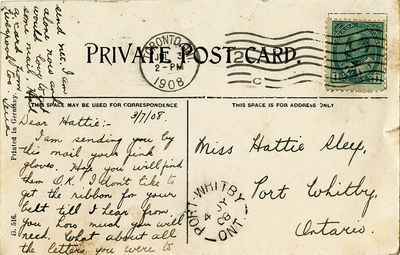 PRIVATE POST-CARD.
TORONTO
2-PM
1908
C
THIS SPACE MAY BE USED FOR CORRESPONDENCE
THIS SPACE IS FOR ADDRESS ONLY
Dear Hattie:- 3/7/08.
I am sending you by
this mail your pink
gloves. Hope you will find
them O.K. I don't like to
get the ribbon for your
belt till I hear from
you how much you will
need. What about all
the letters you were to
send me. I am
alone now and
would love to
some mail
a card from
Liverpool too
Miss Hattie
Port Whitby.
Ontario.
PORT-WHITBY
4 JY
08
ONT.
G. 516. Printed in Germany.